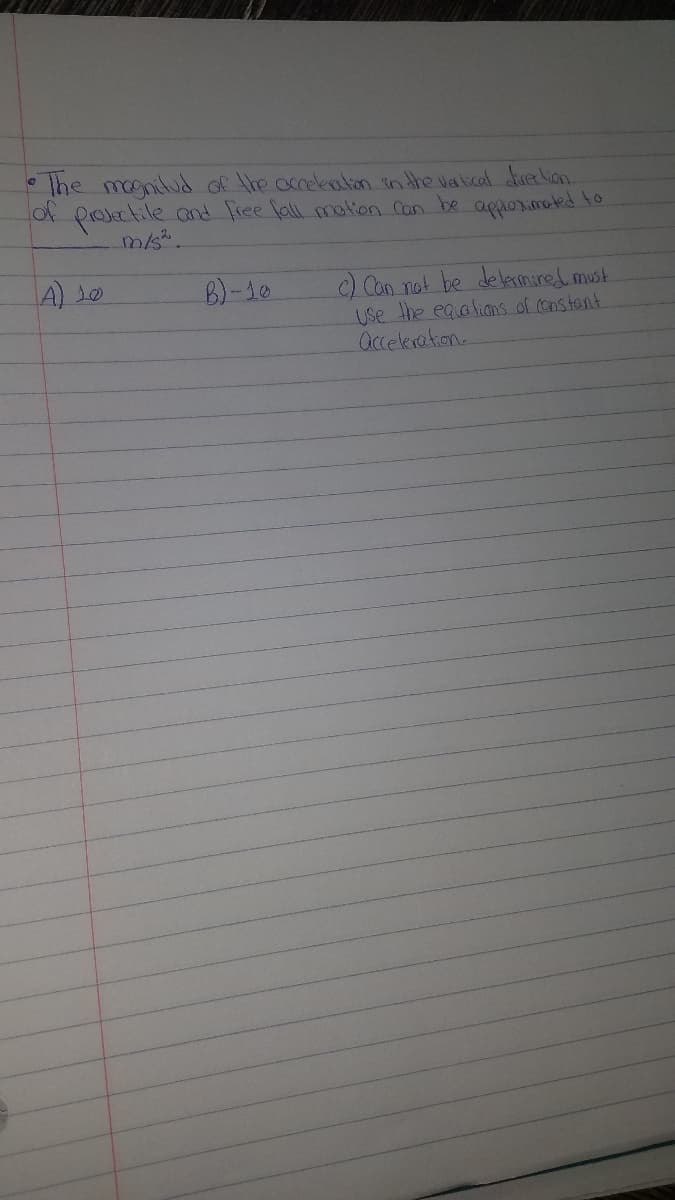 • The magnitud of the acceleration in the vertical direction
of projectile and free fall motion can be approximated to
____ m/s².
A) 10 B) -10 c) Can not be determined must
use the equations of constant
acceleration.